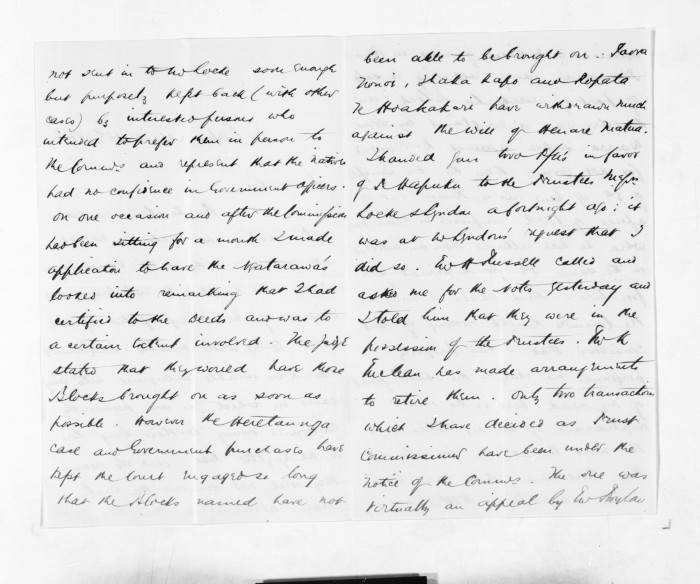 not sent in to Mr Locke soon enough
but purposely kept back (with other
cases) by interested persons who
intended to prefer them in person to
the Commrs. and represent that the natives
had no confidence in Government officers.
on one occasion and after the Commission
had been sitting for a month I made
application to have the Ngatarawa's
looked into remarking that I had
certified to the deeds and was to
a certain extent involved. The Judge
stated that they would have those
Blocks brought on as soon as
possible. However the Heretaunga
case and Government purchases have
kept the Court engaged so long
that the Blocks named have not
been able to be brought on. Paora
Nonoi, Ihaka Kapo and Ropata
Te Hoakakari have withdrawn much
against the will of Henare Matua.
I handed you two in favor
of Te Hapuku to the Trustees Messrs.
Locke & Lyndon a fortnight ago: it
was at Mr Lyndon's request that I
did so. Mr H Russell called and
asked me for the Notes yesterday and
I told him that they were in the
possession of the Trustees. Mr
McLean has made arrangements
to retire them. Only two transactions
which I have decided as Trust
Commissioner have been under the
notice of the Commrs. The one was
virtually an appeal by Mr